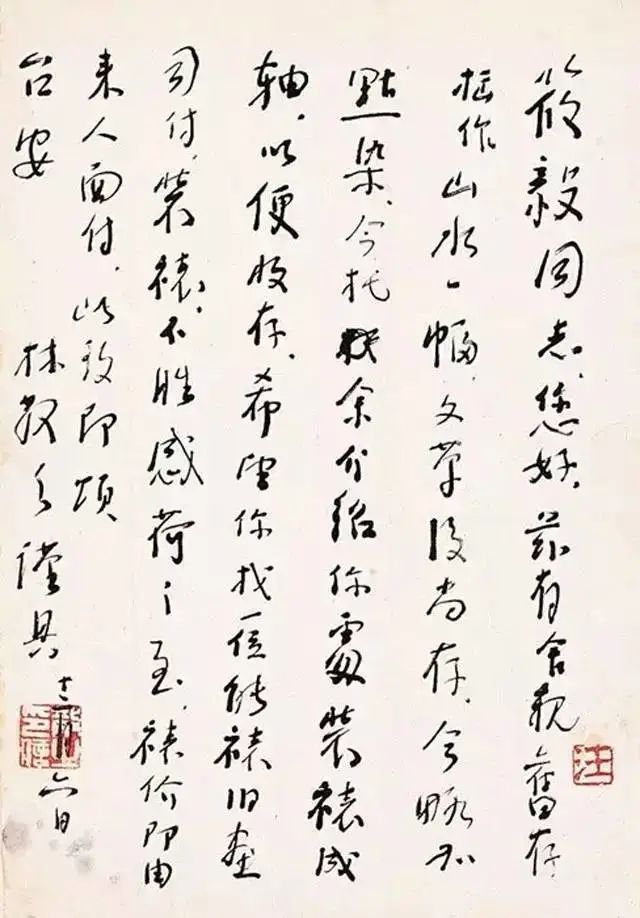 筱毅同志您好,兹有舍親舊存
拙作山水一幅,文革後尚存,今略加
點染,今托余介紹你處裝裱成
轴,以便收存,希望你找一位能裱旧画
司付,裝裱,不胜感荷之至,裱价即由
来人面付,此致即颂
台安 林散之谨具 十二月六日
汪